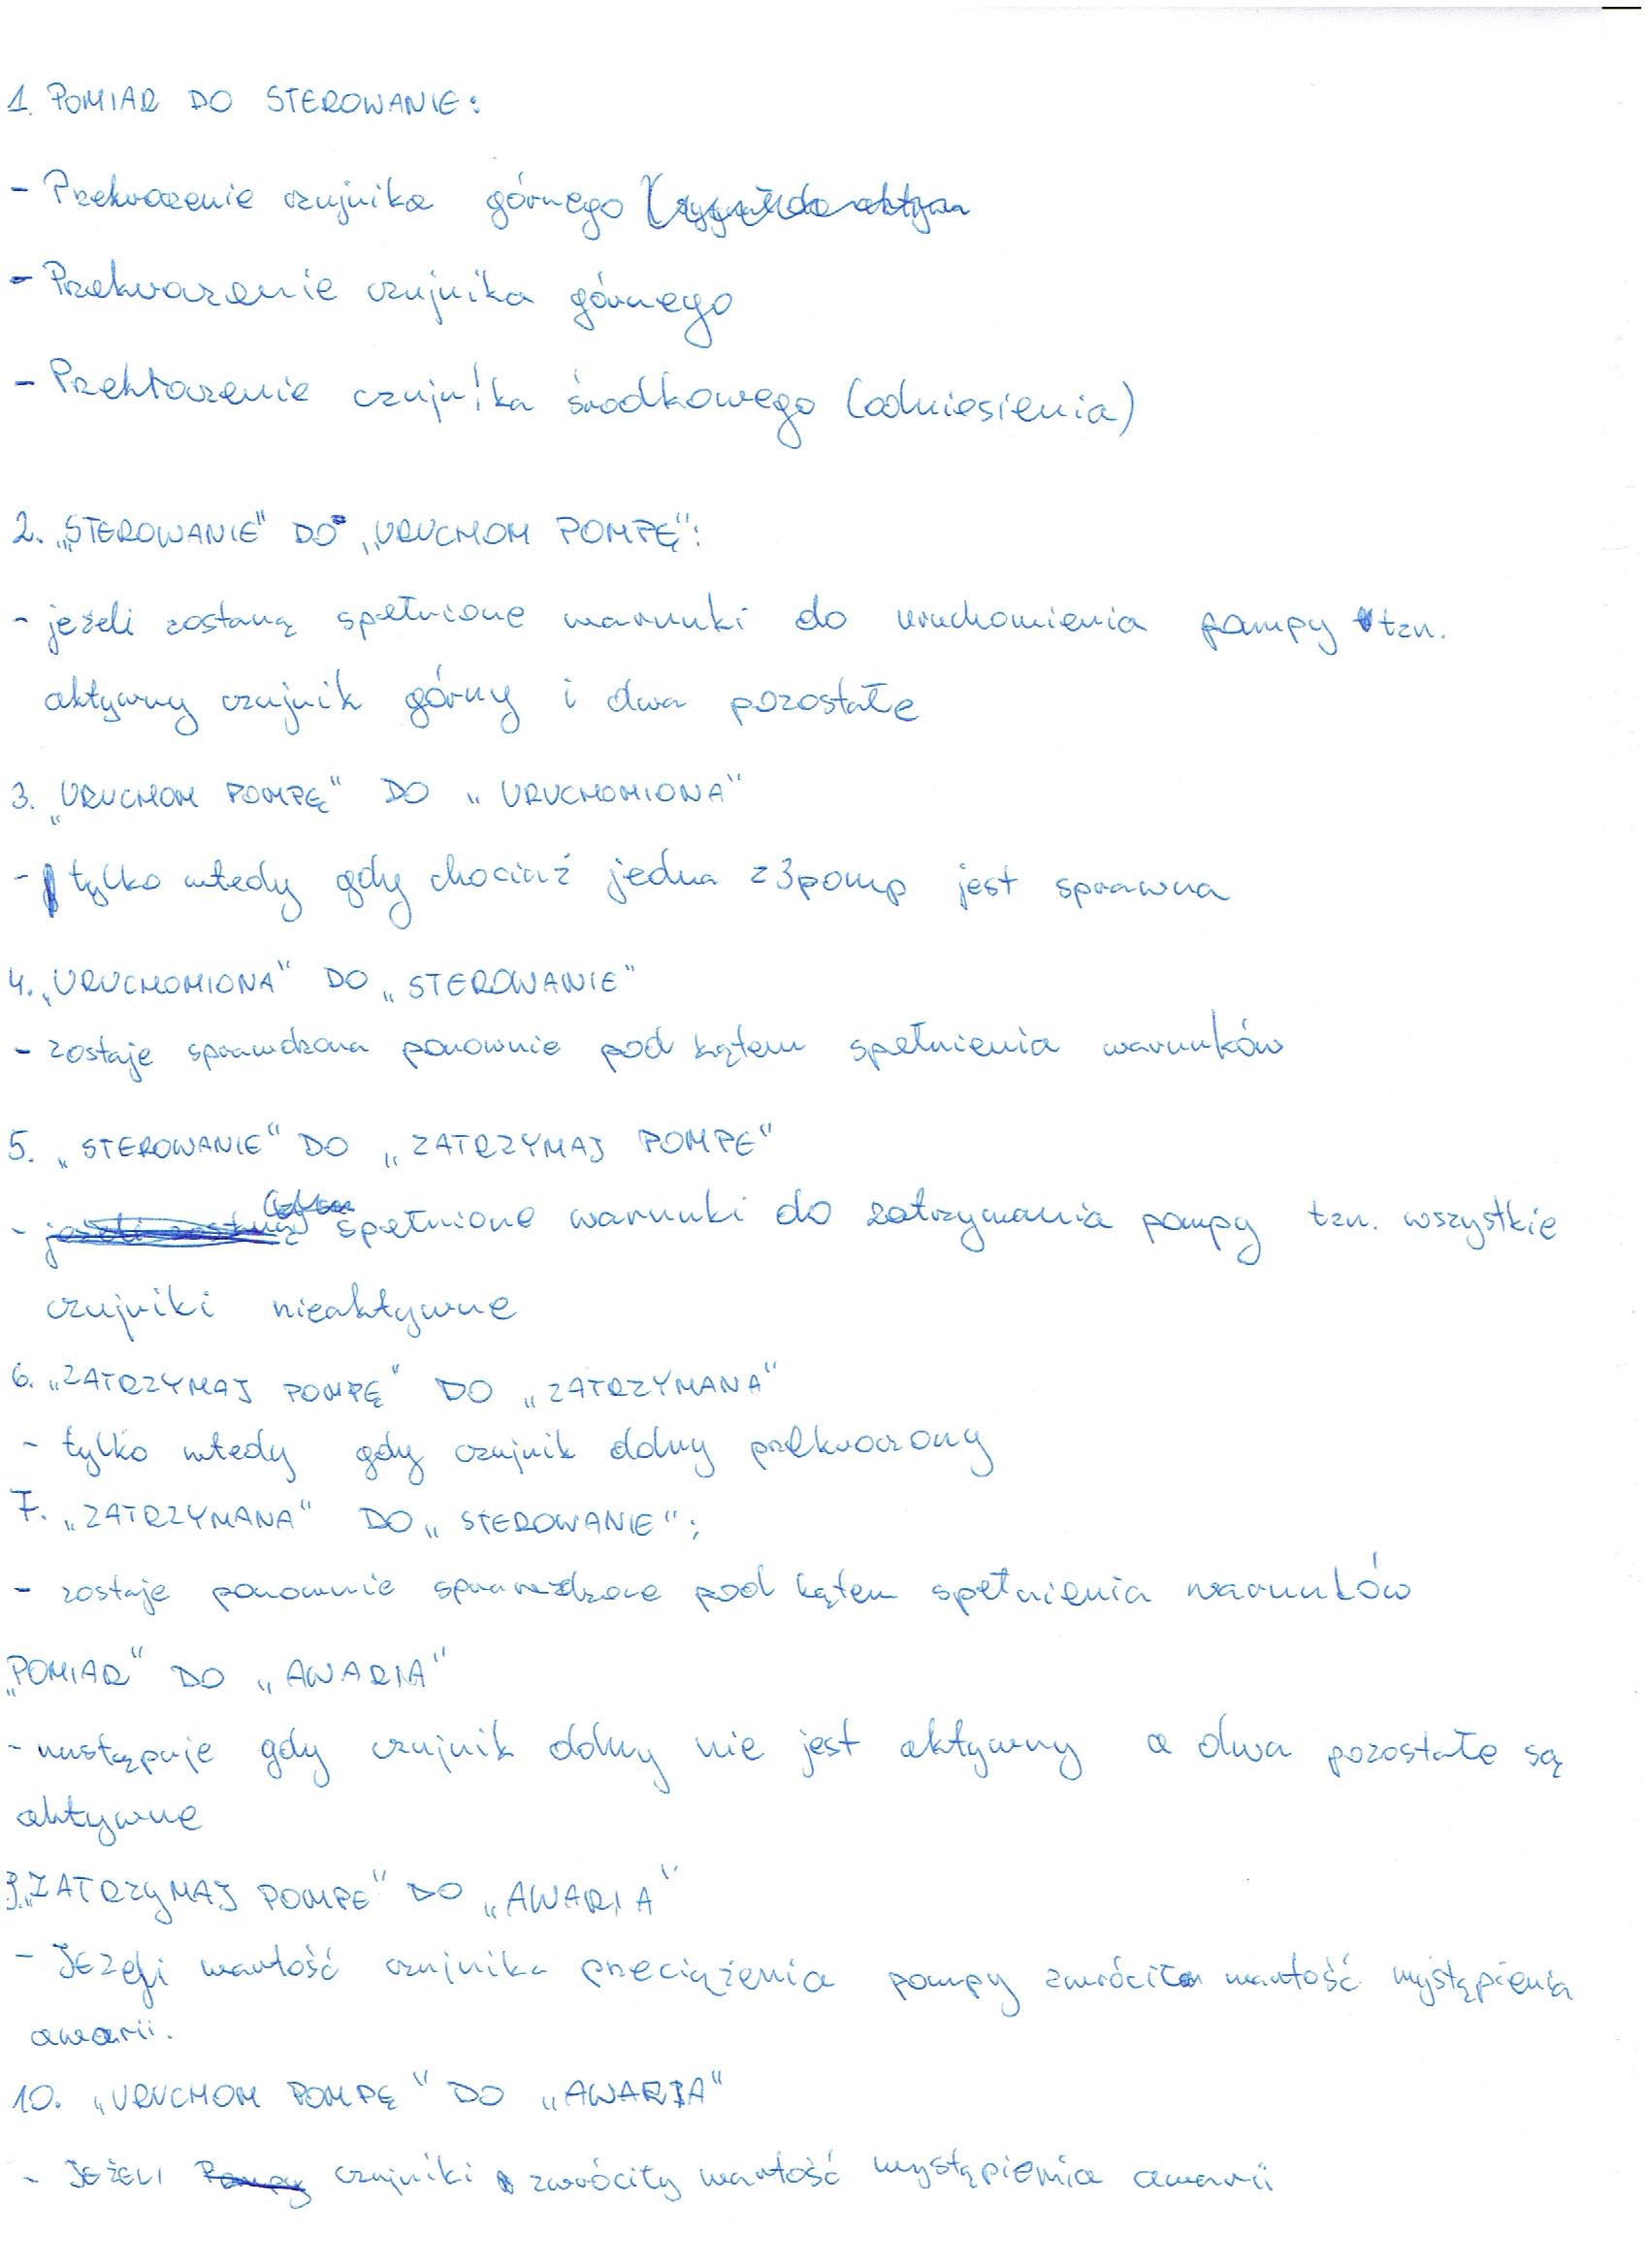 1. POMIAR DO STEROWANIE:
- Przekroczenie czujnika górnego
- Przekroczenie czujnika górnego
- Przekroczenie czujnika środkowego (odniesienia)
2. „STEROWANIE" DO „URUCHOM POMPĘ":
- jeżeli zostaną spełnione warunki do uruchomienia pompy tzn.
aktywny czujnik górny i dwa pozostałe
3. „URUCHOM POMPĘ" DO „URUCHOMIONA"
- tylko wtedy gdy chociaż jedna z 3 pomp jest sprawna
4. „URUCHOMIONA" DO „STEROWANIE"
- zostaje sprawdzona ponownie pod kątem spełnienia warunków
5. „STEROWANIE" DO „ZATRZYMAJ POMPE"
- spełnione warunki do zatrzymania pompy tzn. wszystkie
czujniki nieaktywne
6. „ZATRZYMAJ POMPĘ" DO „ZATRZYMANA"
- tylko wtedy gdy czujnik dolny przekroczony
7. „ZATRZYMANA" DO „STEROWANIE";
- zostaje ponownie sprawdzone pod kątem spełnienia warunków
„POMIAR" DO „AWARIA"
- następuje gdy czujnik dolny nie jest aktywny a dwa pozostałe są
aktywne
9. „ZATRZYMAJ POMPE" DO „AWARIA"
- JEżeli wartość czujnika przeciążenia pompy zwróciła wartość wystąpienia
awarii.
10. „URUCHOM POMPĘ" DO „AWARIA"
- JEŻELI czujniki zwróciły wartość wystąpienia awarii